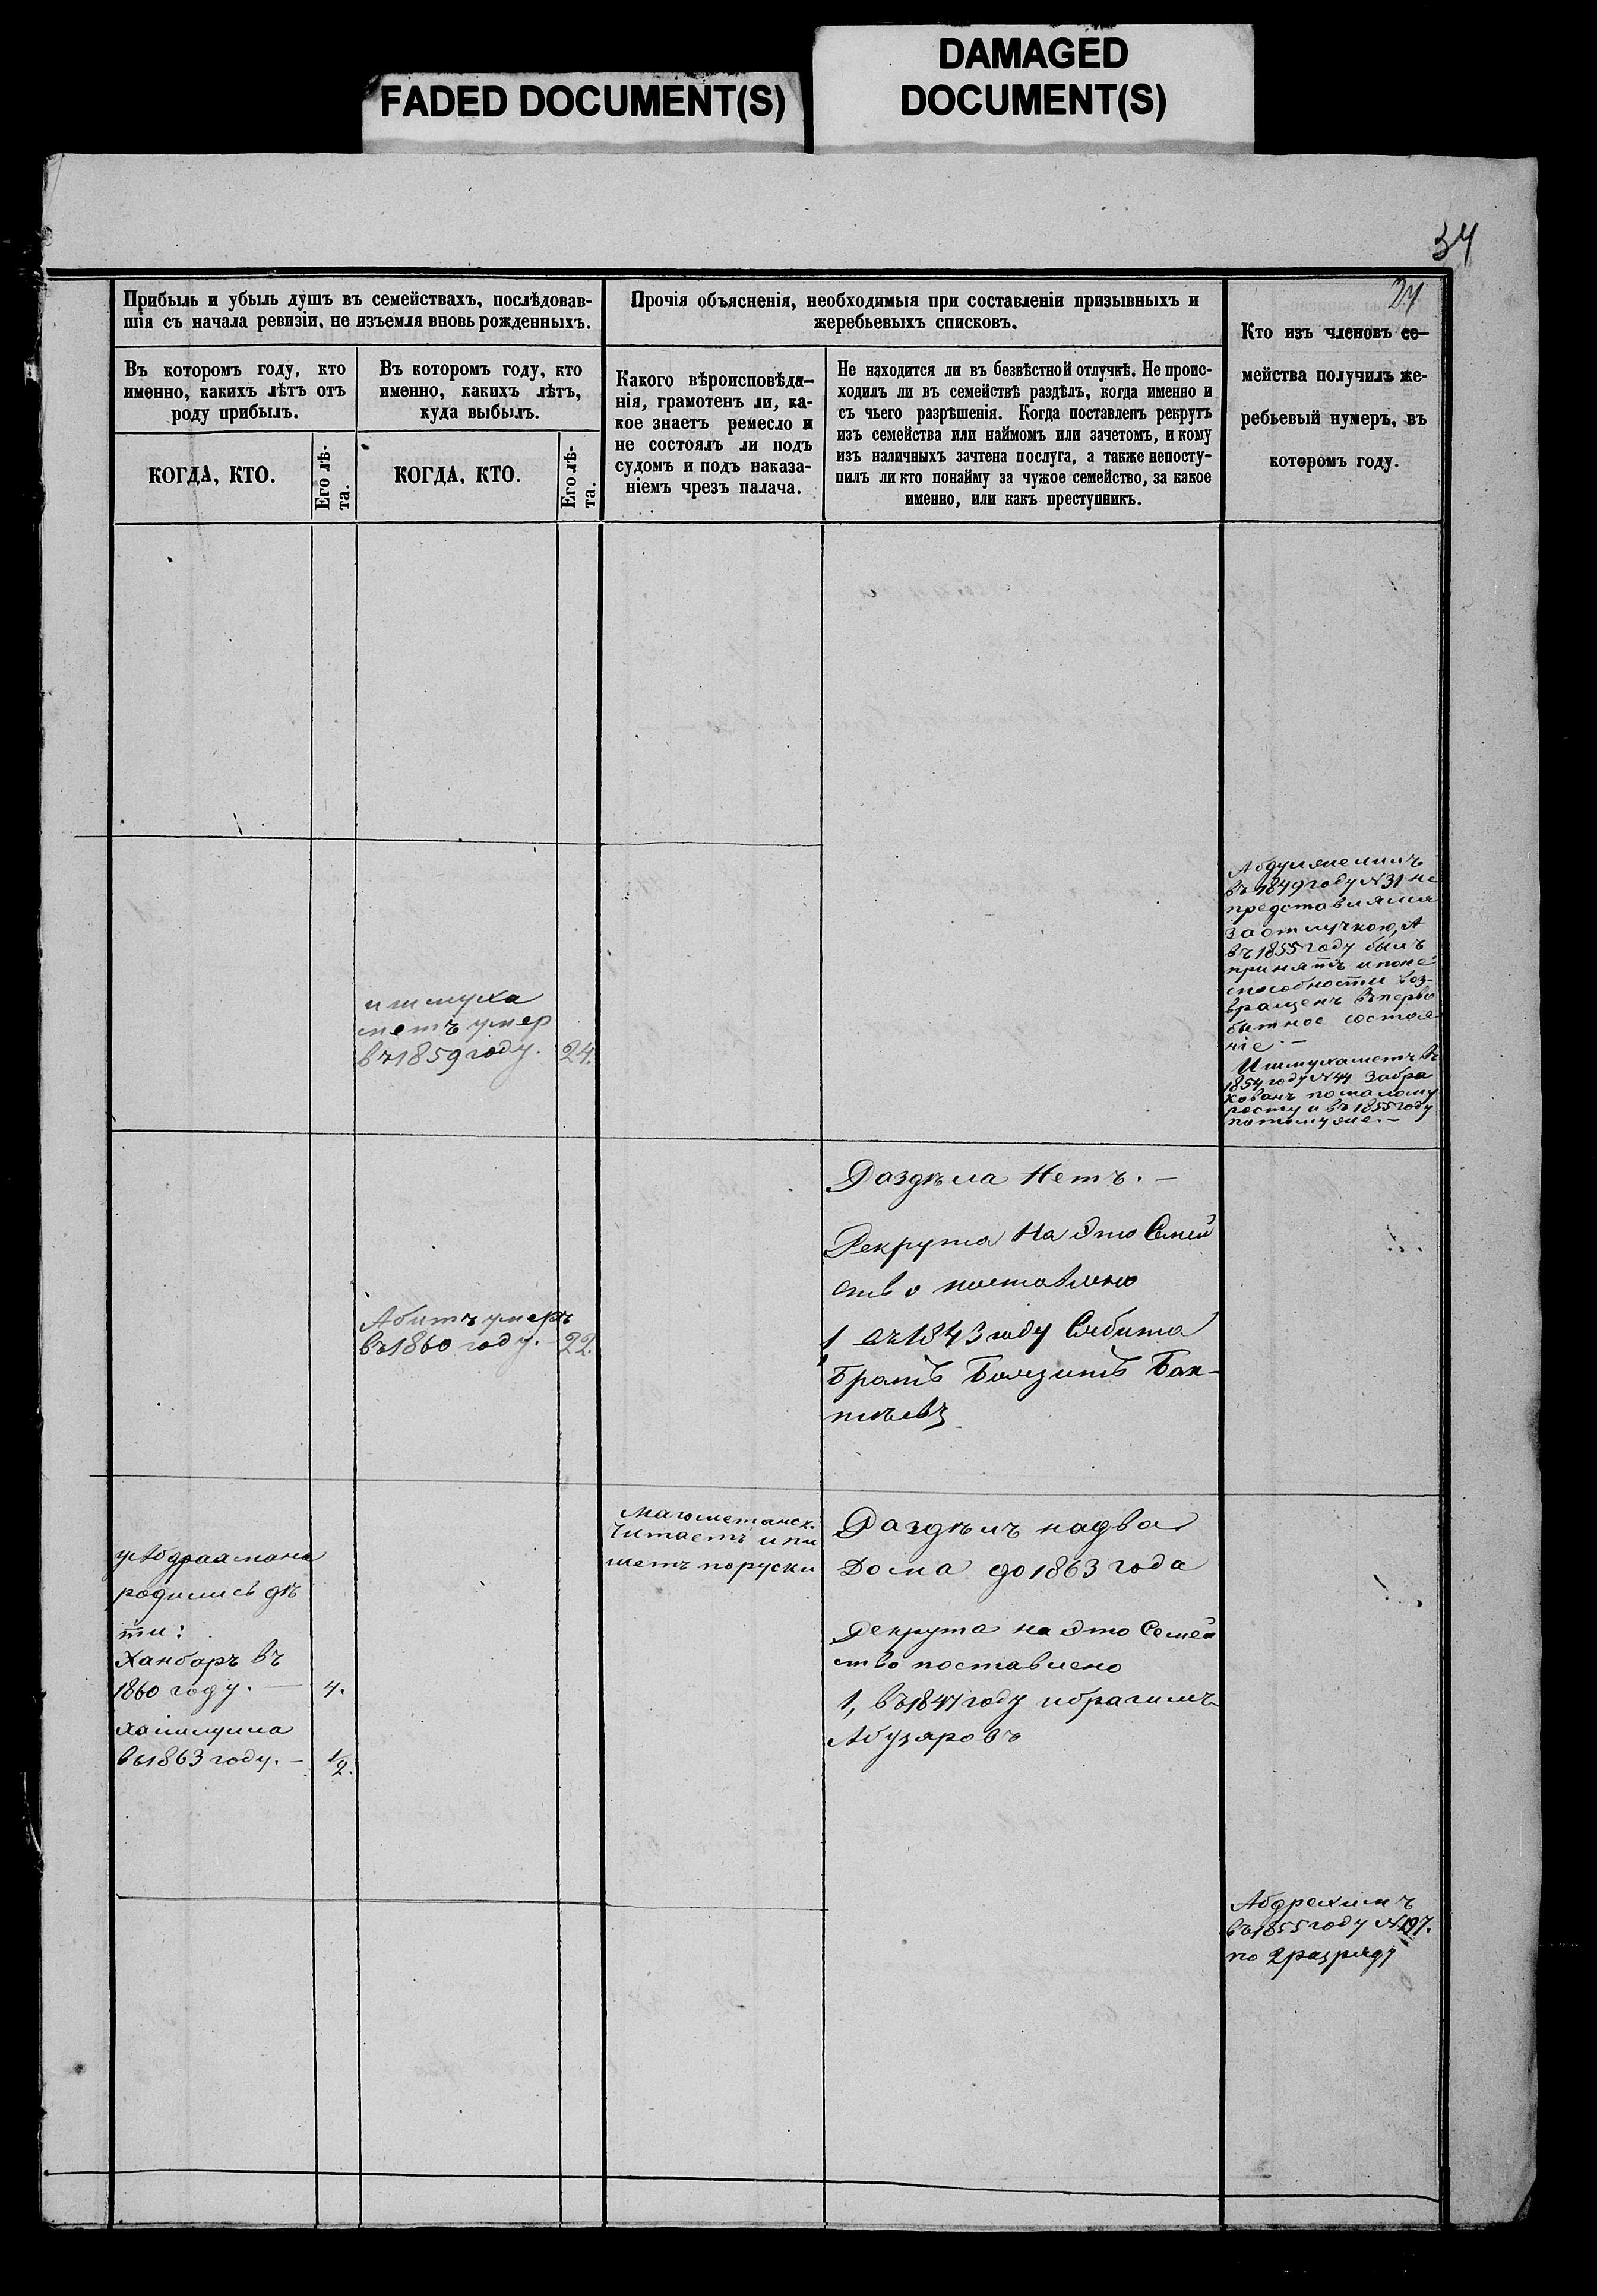 FADED DOCUMENT(S)
DAMAGED
DOCUMENT(S)
34
27
Прибыль и убыль душъ въ семействахъ, послѣдовав-
шія съ начала ревизіи, не изъемля вновь рожденныхъ.
Въ которомъ году, кто
именно, какихъ лѣтъ отъ
роду прибылъ.
КОГДА, КТО.
Его лѣ-
та.
Въ которомъ году, кто
именно, какихъ лѣтъ,
куда выбылъ.
КОГДА, КТО.
Его лѣ-
та.
Прочія объясненія, необходимыя при составленіи призывныхъ и
жеребьевыхъ списковъ.
Какого вѣроисповѣда-
нія, грамотенъ ли, ка-
кое знаетъ ремесло и
не состоялъ ли подъ
судомъ и подъ наказа-
ніемъ чрезъ палача.
Не находится ли въ безвѣстной отлучкѣ. Не проис-
ходилъ ли въ семействѣ раздѣлъ, когда именно и
съ чьего разрѣшенія. Когда поставленъ рекрутъ
изъ семейства или наймомъ или зачетомъ, и кому
изъ наличныхъ зачтена послуга, а также непосту-
пилъ ли кто понайму за чужое семейство, за какое
именно, или какъ преступникъ.
Кто изъ членовъ се-
мейства получилъ же-
ребьевый нумеръ, въ
которомъ году.
въ 1849 году №31 не
представлялся
за отлучкою, А
въ 1855 году былъ
принятъ и по не
способности воз-
вращенъ въ перво
бытное состоя
ніе. –
Ишмухаметъ въ
1854 году №44 забра
кованъ по малому
росту и въ 1855 году
потому же. –
ишмуха
метъ умер
въ 1859 году. 24.
Раздѣла Нетъ. –
Рекрута На Это Семей
ство поставлено
1 въ 1843 году Сябита
братъ Баязитъ Бак-
тѣевъ
Абитъ умеръ
въ 1860 году. 22.
у Абдраамана
родились дѣ
ти:
Ханбаръ въ
1860 году. – 4.
въ 1863 году. – 1/2.
магометанск.
Читаетъ и пи
шетъ поруски
Раздѣлъ надва
Дома до 1863 года
Рекрута на Это Семей
ство поставлено
1, въ 1847 году ибрагимъ
Абузяровъ
Абдрехимъ
въ 1855 году №197.
по 2 разряду